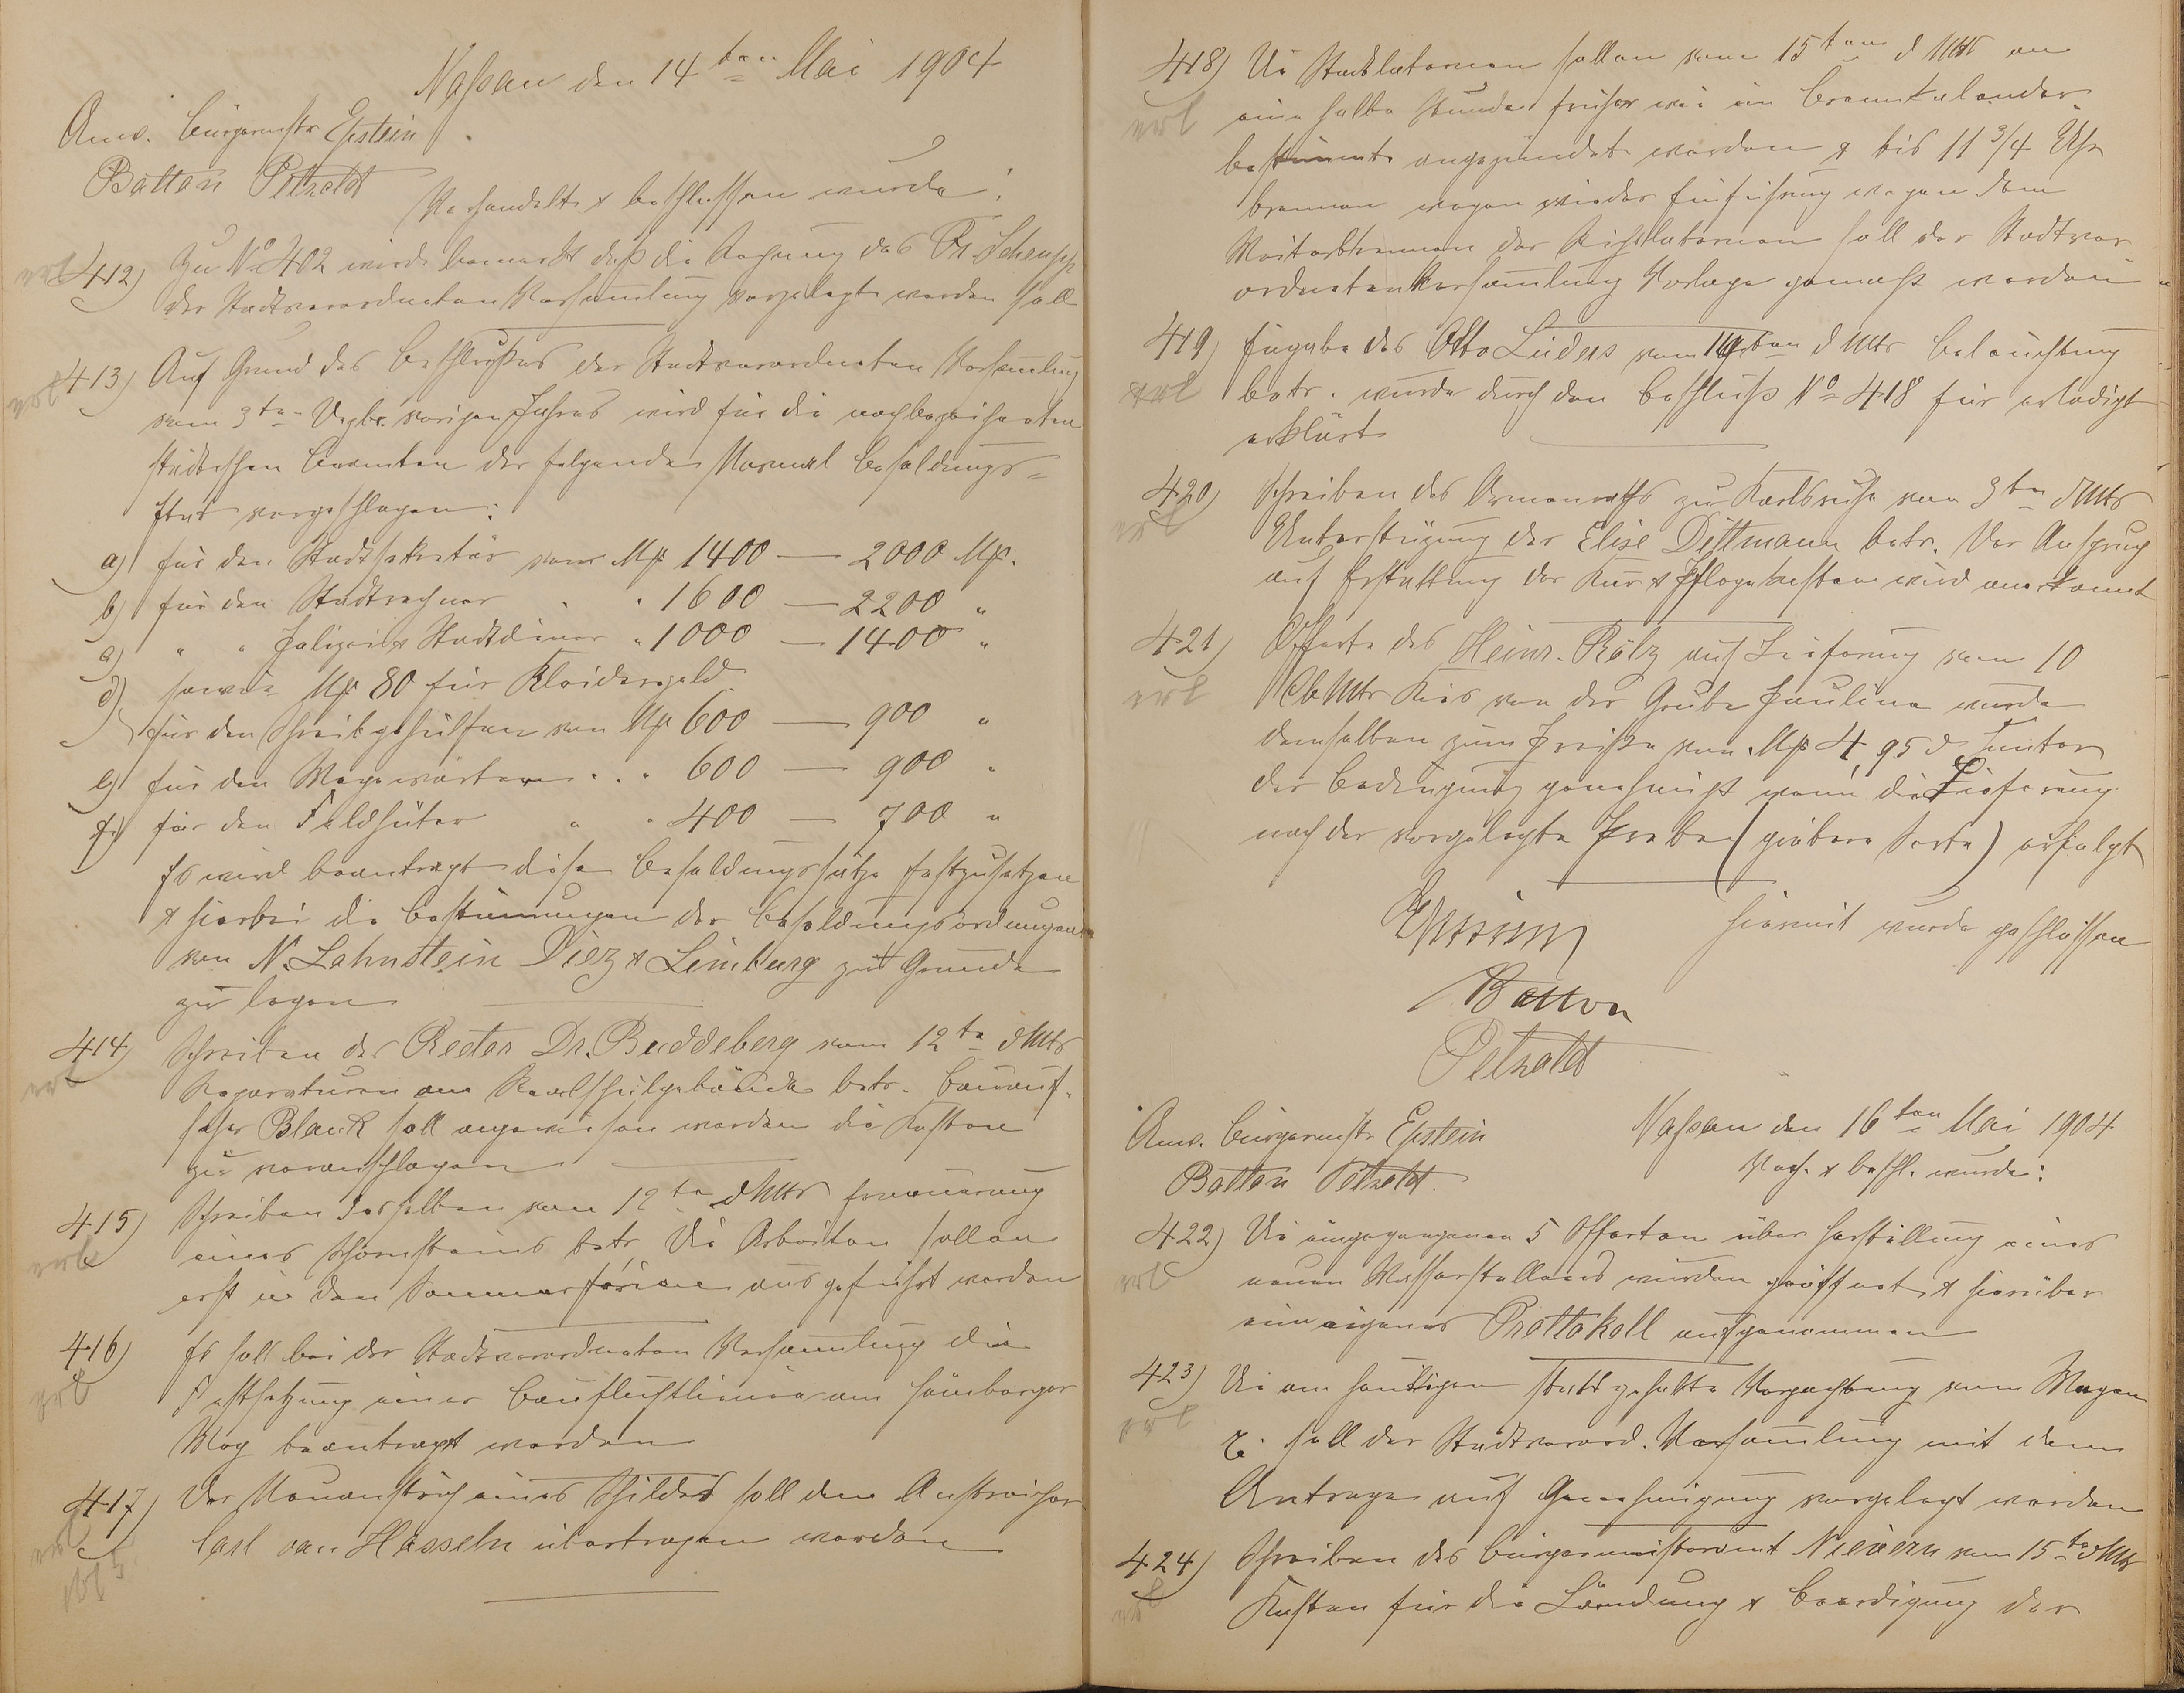 Naßau den 14ten Mai 1904
Anw. Bürgermstr Epstein
Batton Petzoldt
Verhandelt & beschlossen wurde:
erl
412) Zu No 402 wird bemerkt daß die Rechnung des Fr. Schenpp
der Stadtverordneten Versamlung vorgelegt werden soll
erl
413) Auf Grund des Beschlußes der Stadtverordneten Versamlung
vom 9ten Dezbr. vorigen Jahres wird für die nachbezeichneten
städtischen Beamten der folgende Normal Besoldungs=
Etat vorgeschlagen:
a) für den Stadtsekretär vom Mk 1400 — 2000 Mk.
b) für den Stadtrechner " " 1600 — 2200 "
c) " " Polizei & Stadtdiener " 1000 — 1400 "
sowie Mk 80 für Kleidergeld
d) für den Schreibgehülfen von Mk 600 — 900 "
e) für den Wegewärter " " 600 — 900 "
f) für den Feldhüter " " 400 — 700 "
Es wird beantragt diese Besoldungssätze festzusetzen
& hierbei die Bestimmungen der Besoldungsordnungen
von N. Lahnstein Diez & Limburg zu Grunde
zu legen
414) Schreiben des Rector Dr. Buddeberg vom 12te dMts
erl
Reparaturen am Realschulgebäude betr. Bauauf-
seher Blank soll angewiesen werden die Kosten
zu veranschlagen
415) Schreiben desselben vom 12te dMts Erneuerung
erl
eines Schornsteins betr. Die Arbeiten sollen
erst in den Sommerferien ausgeführt werden
416) Es soll bei der Stadtverordneten Versammlung die
erl
Festsetzung einer Baufluchtlinie am Hömberger
Weg beantragt werden
417) Der Neuanstrich eines Schildes soll dem Anstreicher
erl
Carl van Hasseln übertragen werden
418) Die Stadtlaternen sollen vom 15ten d Mts an
erl
eine halbe Stunde früher wie im Brennkalender
bestimmt angezündet werden & bis 11 3/4 Uhr
brennen wegen wieder Einführung wegen dem
Weiterbrennen der Richtlaternen soll der Stadtver
ordneten Versamlung Vorlage gemacht werden
419) Eingabe des Otto Lüders vom 10ten d Mts Beleuchtung
erl
betr. wurde durch den Beschluß No 418 für erledigt
erklärt
420) Schreiben des Armenraths zu Karlsruhe vom 9ten dMts
erl
Unterstützung der Elise Dittmann betr. Der Anspruch
auf Erstattung der Kur & Pflegekosten wird anerkannt
421) Offerte des Heinr. Rölz auf Lieferung vom 10
erl
CbMtr Kies von der Grube Pauline wurde
demselben zum Preiße von Mk 4,95 d unter
der Bedingung genehmigt wenn die Lieferung
nach der vorgelegte Probe (gröbere Sorte) erfolgt
Hiermit wurde geschlossen
Epstein
Batton
Petzoldt
Naßau den 16ten Mai 1904
Anw. Bürgermstr Epstein
Batton Petzoldt
Verh. & beschl. wurde:
422) Die eingegangenen 5 Offerten über Herstellung eines
erl
neuen Wasserstollens wurden geöffnet & hierüber
ein eigenes Prottokoll aufgenommen
423) Die am heutigen statt gehabte Verpachtung vom Wegen
erl
soll der Stadtverord. Versamlung mit dem
Antrage auf Genehmigung vorgelegt werden
424) Schreiben des Bürgermeisteramt Nievern vom 15te dMts
erl
Kosten für die Ländung & Beerdigung der